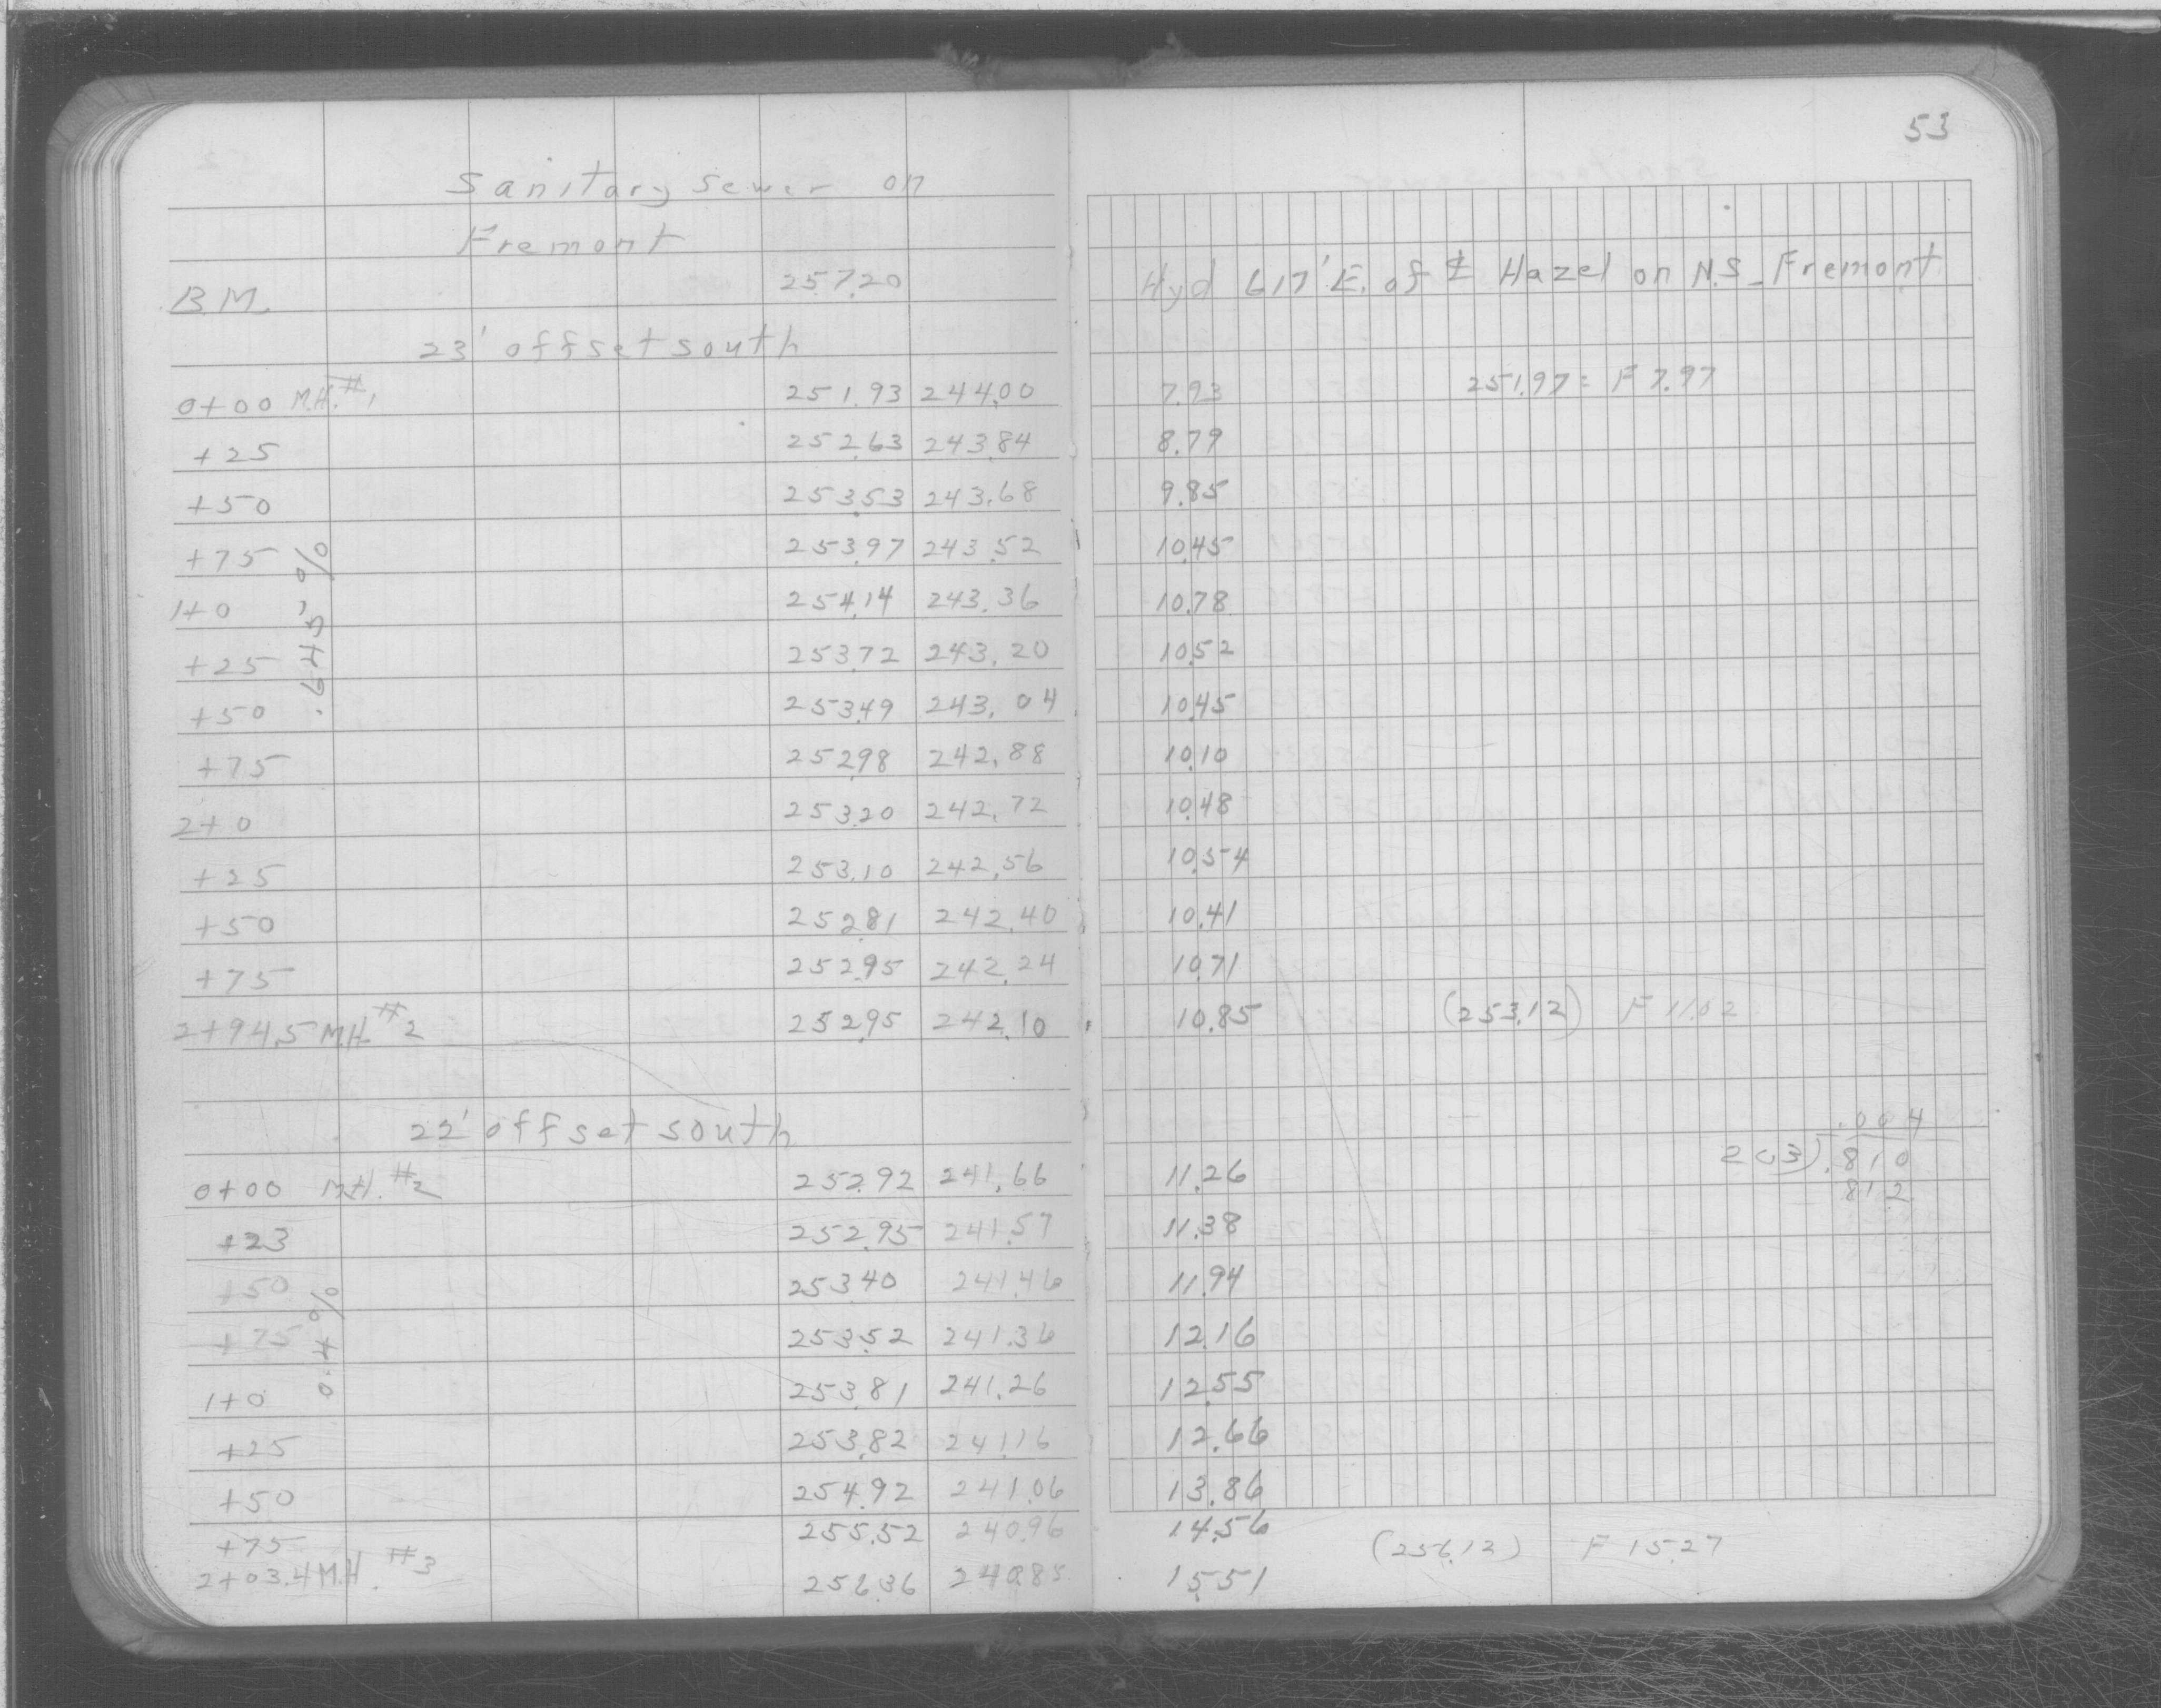 53
Sanitary Sewer on
Fremont
B.M. 257.20 Hyd 617' E. of ℄ Hazel on N.S. Fremont
23' offset south
0+00 M.H. #1 251.93 244.00 7.93 251.97 = F 7.97
+25 252.63 243.84 8.79
+50 253.53 243.68 9.85
+75 253.97 243.52 10.45
1+0 254.14 243.36 10.78
+25 253.72 243.20 10.52
+50 253.49 243.04 10.45
+75 252.98 242.88 10.10
2+0 253.20 242.72 10.48
+25 253.10 242.56 10.54
+50 252.81 242.40 10.41
+75 252.95 242.24 10.71
2+94.5 M.H. #2 252.95 242.10 10.85 (253.12) F 11.02
.645%
22' offset south
.004
0+00 M.H. #2 252.92 241.66 11.26 203).810
812
+23 252.95 241.57 11.38
+50 253.40 241.46 11.94
+75 253.52 241.36 12.16
1+0 253.81 241.26 12.55
+25 253.82 241.16 12.66
+50 254.92 241.06 13.86
+75 255.52 240.96 14.56
2+03.4 M.H. #3 256.36 240.85 15.51 (256.12) F 15.27
0.4%